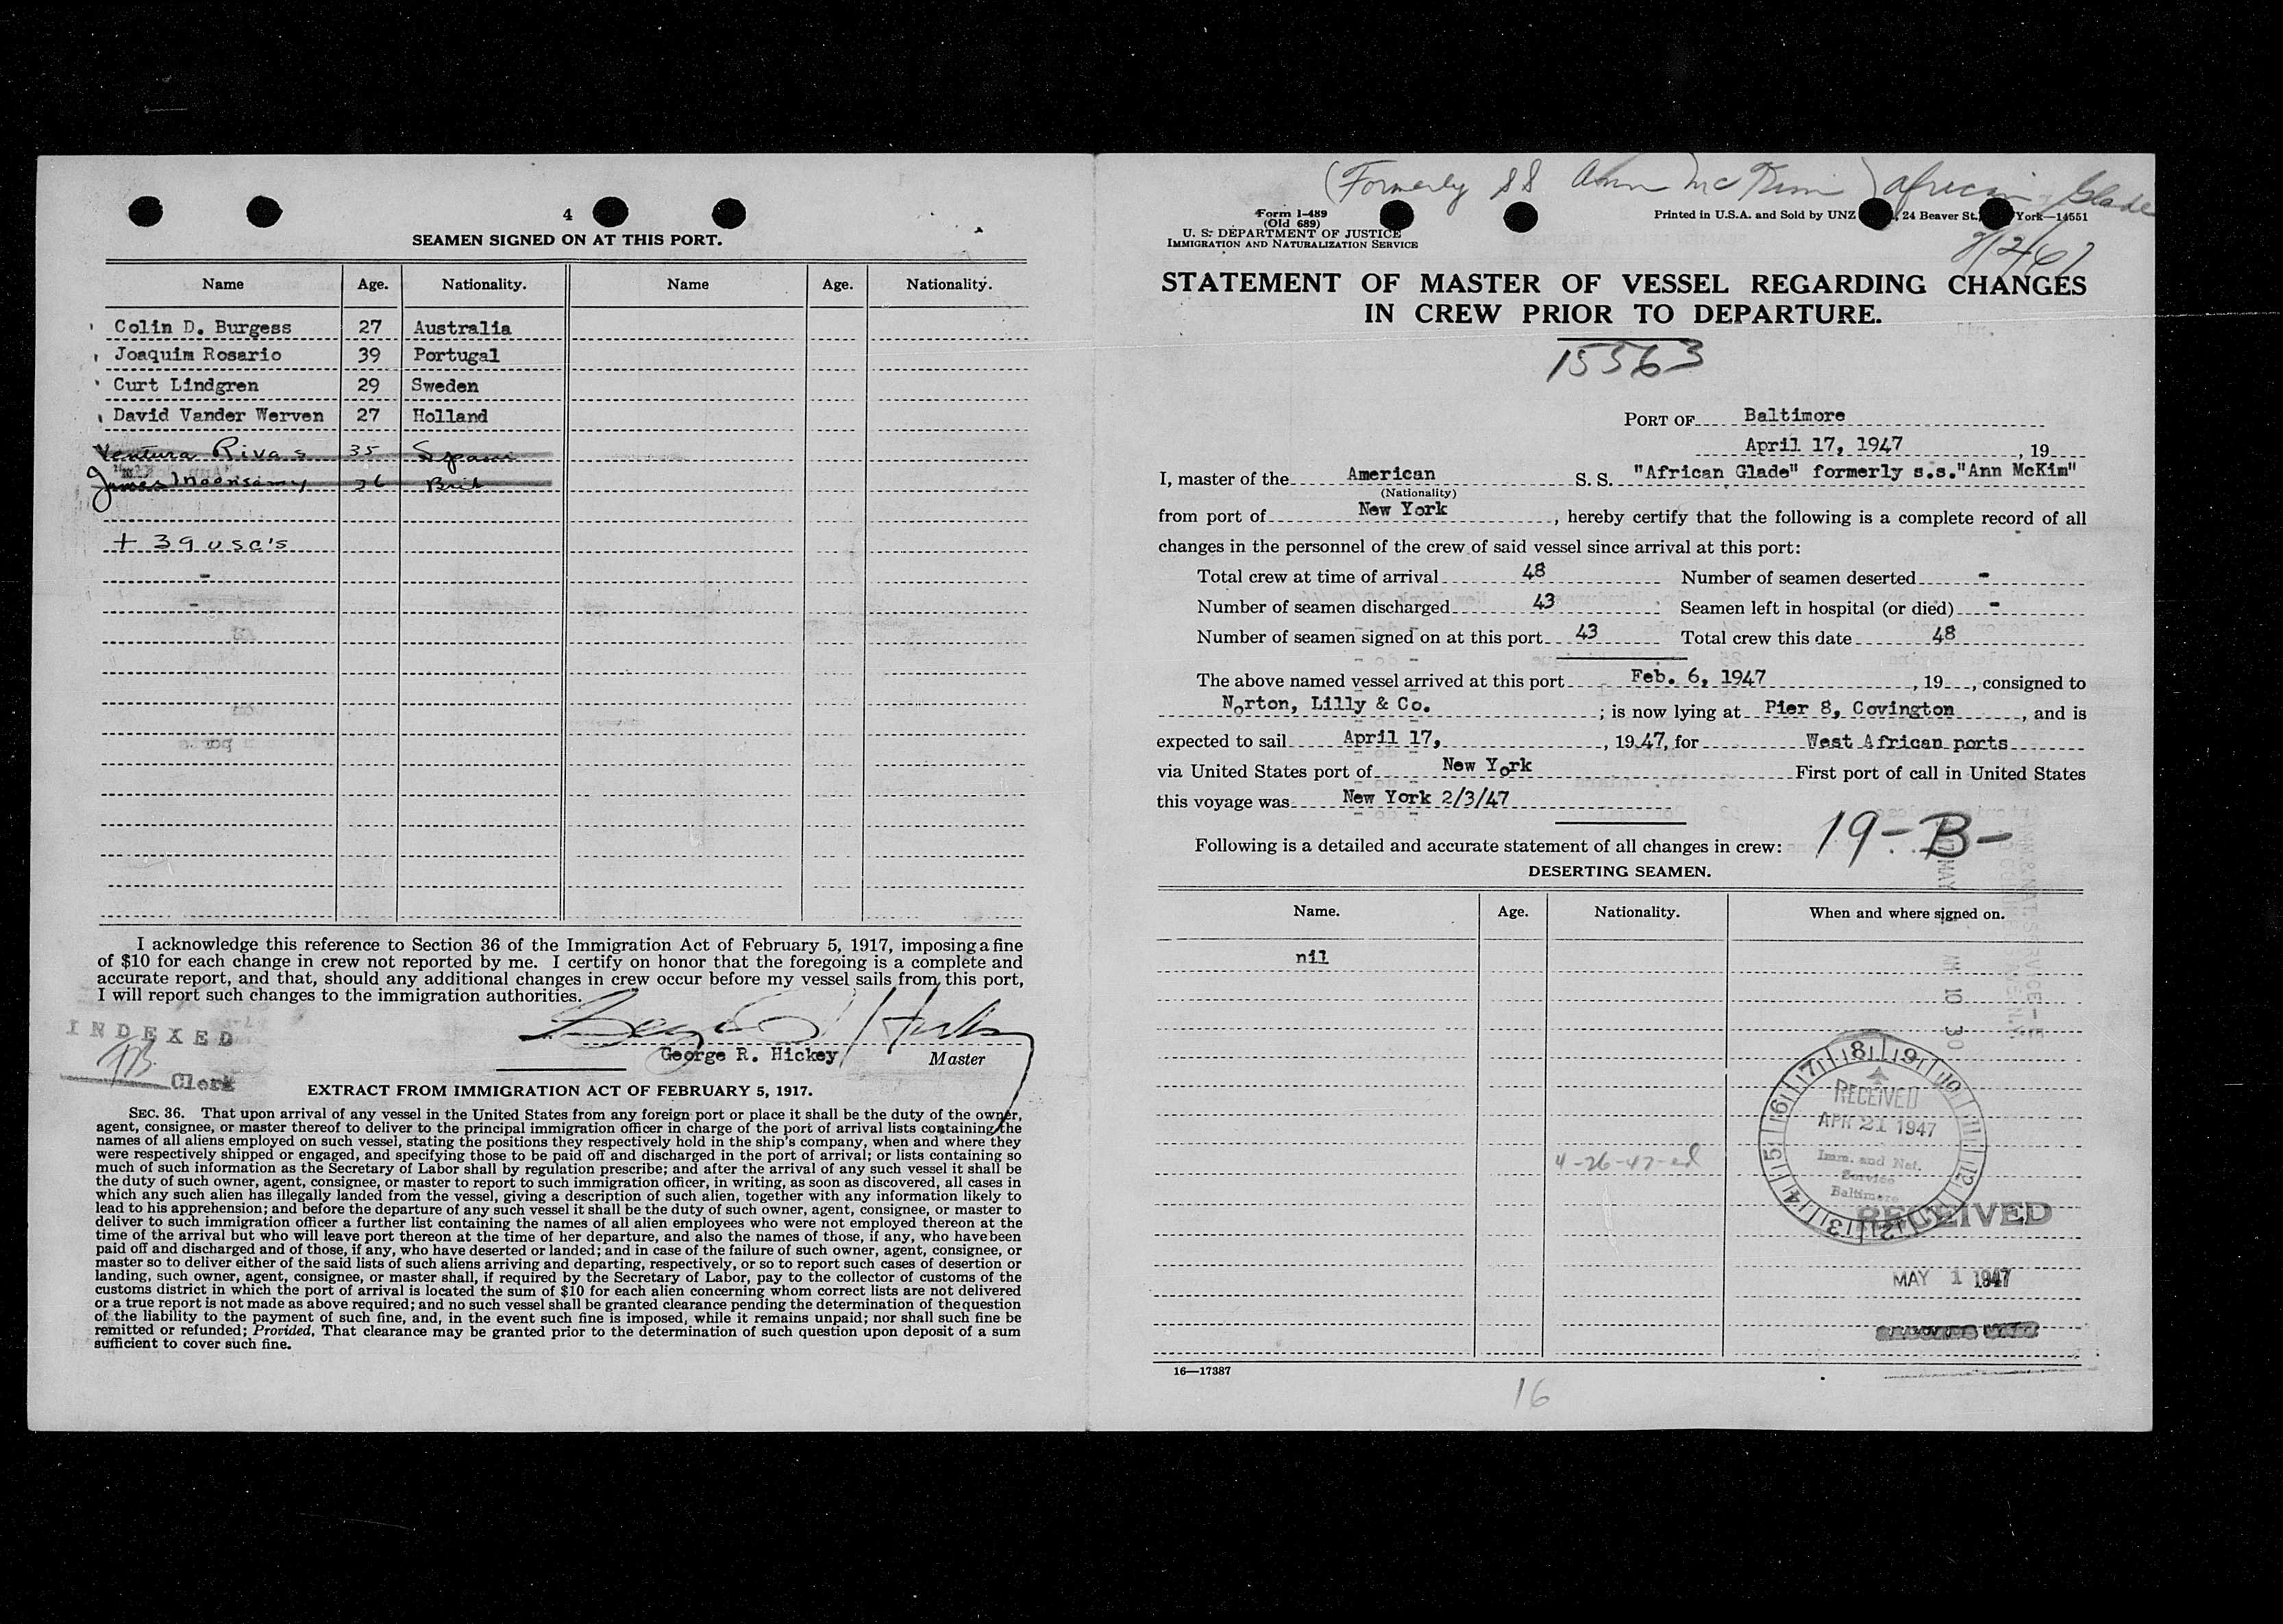 4
SEAMEN SIGNED ON AT THIS PORT.
Name Age. Nationality. Name Age. Nationality.
Colin D. Burgess 27 Australia
Joaquim Rosario 39 Portugal
Curt Lindgren 29 Sweden
David Vander Werven 27 Holland
Ventura Rivas 35 Spain
James Moonsamy 36 Brit
+ 39 USC's
I acknowledge this reference to Section 36 of the Immigration Act of February 5, 1917, imposing a fine
of $10 for each change in crew not reported by me. I certify on honor that the foregoing is a complete and
accurate report, and that, should any additional changes in crew occur before my vessel sails from this port,
I will report such changes to the immigration authorities.
INDEXED
George R. Hickey Master
Clerk
EXTRACT FROM IMMIGRATION ACT OF FEBRUARY 5, 1917.
SEC. 36. That upon arrival of any vessel in the United States from any foreign port or place it shall be the duty of the owner,
agent, consignee, or master thereof to deliver to the principal immigration officer in charge of the port of arrival lists containing the
names of all aliens employed on such vessel, stating the positions they respectively hold in the ship's company, when and where they
were respectively shipped or engaged, and specifying those to be paid off and discharged in the port of arrival; or lists containing so
much of such information as the Secretary of Labor shall by regulation prescribe; and after the arrival of any such vessel it shall be
the duty of such owner, agent, consignee, or master to report to such immigration officer, in writing, as soon as discovered, all cases in
which any such alien has illegally landed from the vessel, giving a description of such alien, together with any information likely to
lead to his apprehension; and before the departure of any such vessel it shall be the duty of such owner, agent, consignee, or master to
deliver to such immigration officer a further list containing the names of all alien employees who were not employed thereon at the
time of the arrival but who will leave port thereon at the time of her departure, and also the names of those, if any, who have been
paid off and discharged and of those, if any, who have deserted or landed; and in case of the failure of such owner, agent, consignee, or
master so to deliver either of the said lists of such aliens arriving and departing, respectively, or so to report such cases of desertion or
landing, such owner, agent, consignee, or master shall, if required by the Secretary of Labor, pay to the collector of customs of the
customs district in which the port of arrival is located the sum of $10 for each alien concerning whom correct lists are not delivered
or a true report is not made as above required; and no such vessel shall be granted clearance pending the determination of the question
of the liability to the payment of such fine, and, in the event such fine is imposed, while it remains unpaid; nor shall such fine be
remitted or refunded; Provided, That clearance may be granted prior to the determination of such question upon deposit of a sum
sufficient to cover such fine.
(Formerly SS Ann McKim) African Glade
Form I-489
(Old 689)
U. S. DEPARTMENT OF JUSTICE
IMMIGRATION AND NATURALIZATION SERVICE
Printed in U.S.A. and Sold by UNZ , 24 Beaver St., York—14551
STATEMENT OF MASTER OF VESSEL REGARDING CHANGES
IN CREW PRIOR TO DEPARTURE.
15563
PORT OF Baltimore
April 17, 1947, 19
I, master of the American S. S. "African Glade" formerly s.s."Ann McKim"
(Nationality)
from port of New York, hereby certify that the following is a complete record of all
changes in the personnel of the crew of said vessel since arrival at this port:
Total crew at time of arrival 48 Number of seamen deserted -
Number of seamen discharged 43 Seamen left in hospital (or died) -
Number of seamen signed on at this port 43 Total crew this date 48
The above named vessel arrived at this port Feb. 6, 1947, 19 , consigned to
Norton, Lilly & Co. ; is now lying at Pier 8, Covington, and is
expected to sail April 17, , 1947, for West African ports
via United States port of New York First port of call in United States
this voyage was New York 2/3/47
Following is a detailed and accurate statement of all changes in crew: 19-B-
DESERTING SEAMEN.
Name. Age. Nationality. When and where signed on.
nil
RECEIVED
APR 21 1947
Imm. and Nat.
Service
Baltimore
4-26-47-ed
RECEIVED
MAY 1 1947
16—17387
16